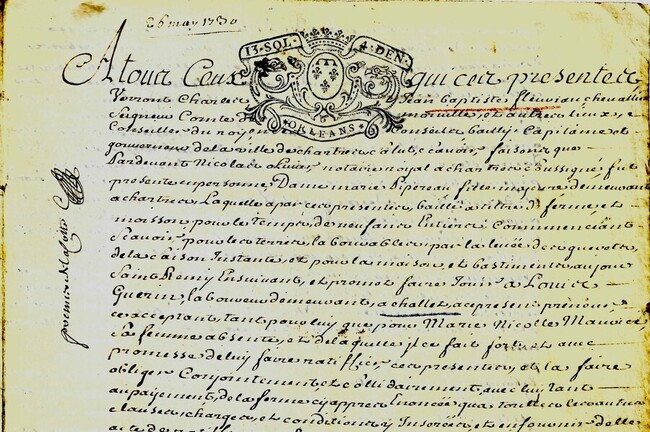 26 may 1730
13·SOL· 4·DEN·
ORLEANS
A tous Ceux qui ces presentes
Verront Charles Jean baptiste fleuriau chevallier
Seigneur Comte de morville, et autres lieux,
Conseiller du roy en Conseils bailly Capitaine et
gouverneur de la ville de chartres salut, scavoir, faisons que
Pardevant Nicolas notaire royal a chartres soussigné fut
presente en personne Dame marie fille majeure demeurant
a chartres Laquelle a par ces presentes, baillé a titre de ferme et
moisson pour le temps de neuf ans Entiers Commenciant
Scavoir pour les terres labourables par la levée de
de la saison Instante, et pour la maison, et bastiments au jour
Saint Remy Ensuivant, et promet faire Jouir a Louis
Guerin laboureur demeurant, a challet, a ce present preneur
ce acceptant, tant pour luy que pour Marie Nicolle
sa femme absente, et de laquelle jl ce fait fort, et avec
promesse de luy faire ratiffier ces presentes, et la faire
obliger Conjointement, et solidairement, avec luy tant
au payement, de la ferme cy apres Enoncée qua touttes les
clauses, charges, et conditions y Inserées, et en fournir
premier de la Cotte